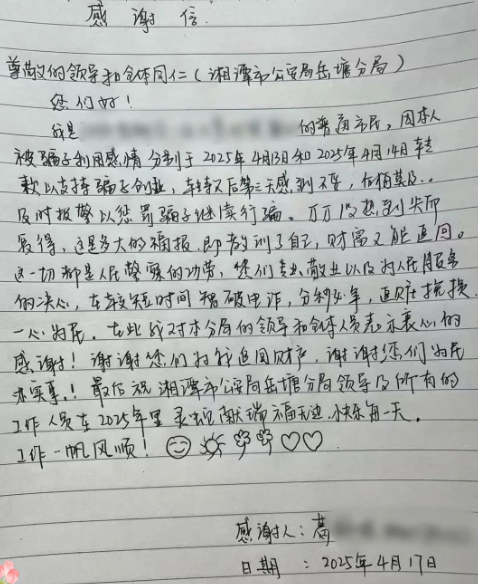 感谢信
尊敬的领导和全体同仁（湘潭市公安局岳塘分局）
您们好！
我是 的普通市民，因本人
被骗子利用感情分别于2025年4月13日和2025年4月14日转
款以支持骗子创业，转款后第三天感到不妥，
及时报警以惩罚骗子继续行骗。万万没想到失而
复得，这是多大的福报，即教训了自己，财富又能追回。
这一切都是人民警察的功劳，您们专业、敬业以及为人民服务
的决心，在较短时间 破电诈，分秒必争，追赃挽损
一心为民。在此我对本分局的领导和全体人员表示衷心的
感谢！谢谢您们为我追回财产，谢谢您们为民
办实事！最后祝湘潭市公安局岳塘分局领导及所有的
工作人员在2025年里灵蛇献瑞福无边，快乐每一天，
工作一帆风顺！
感谢人：
日期：2025年4月17日